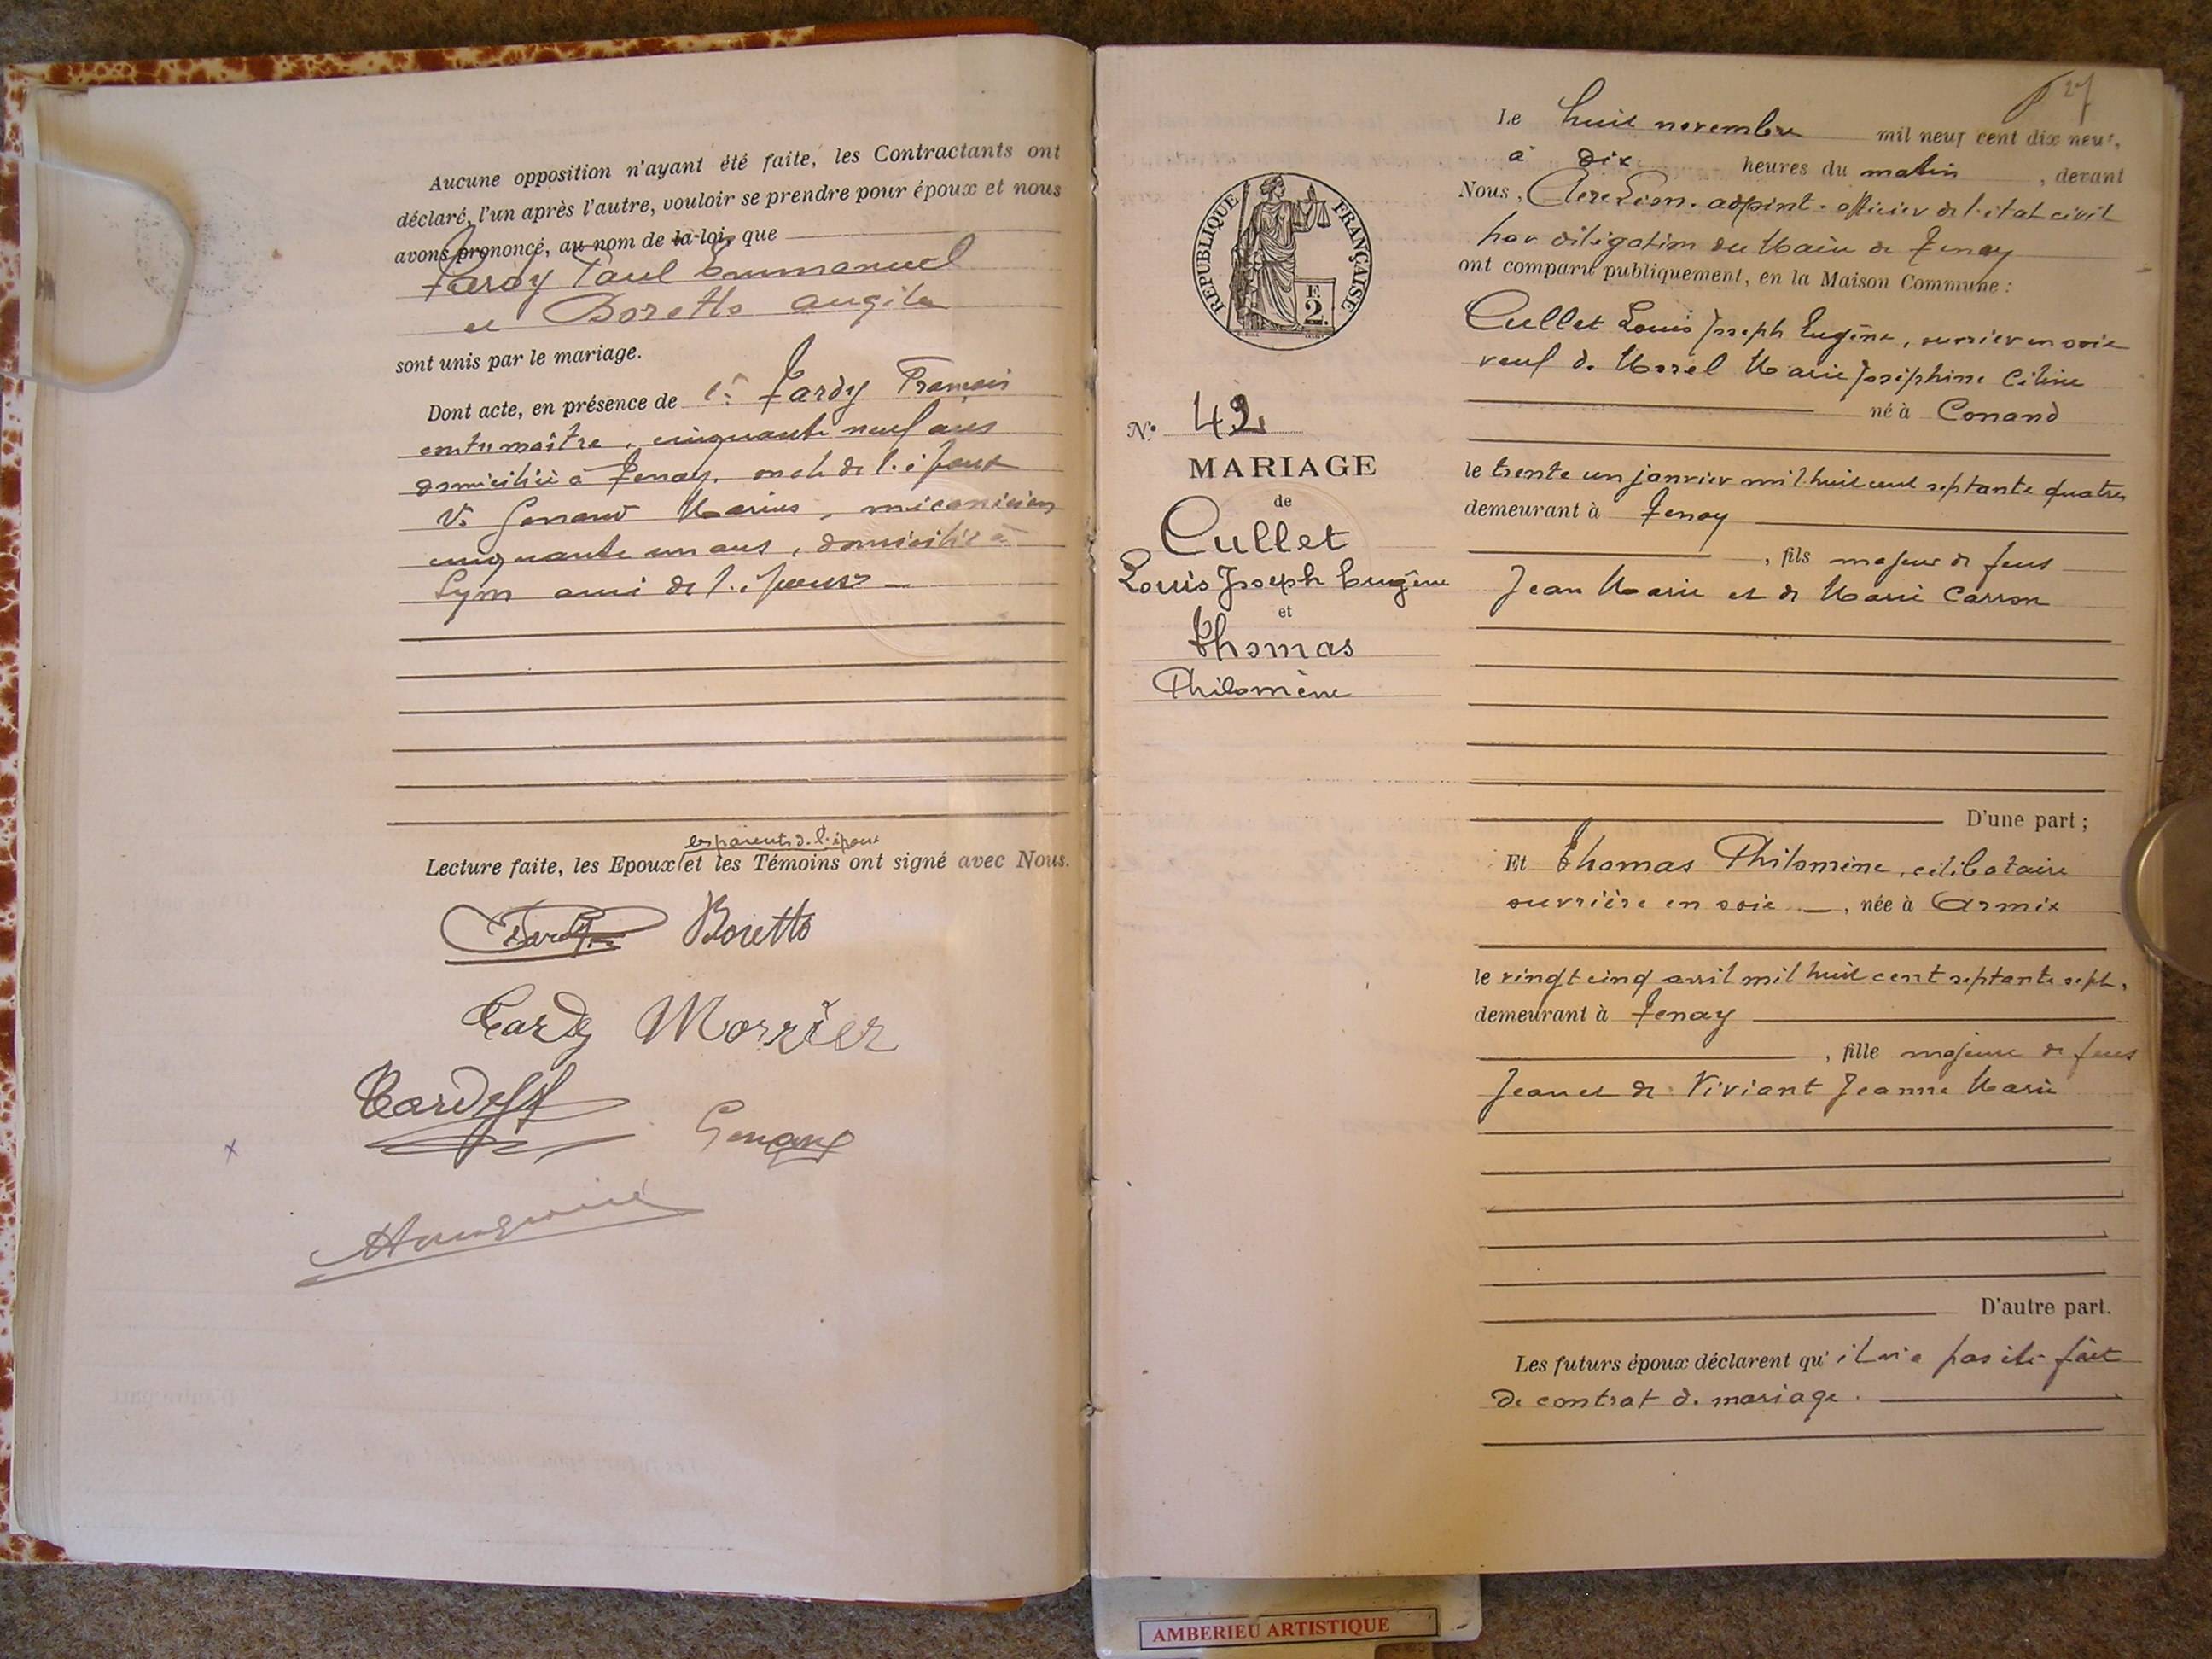 Aucune opposition n'ayant été faite, les Contractants ont
déclaré, l'un après l'autre, vouloir se prendre pour époux et nous
avons prononcé, au nom de la loi, que
Tardy Paul Emmanuel
et Boretto Angila
sont unis par le mariage.
Dont acte, en présence de 1º Tardy François
contremaître, cinquante neuf ans
domicilié à Tenay, oncle de l'époux
Genand Marius, mécanicien
cinquante un ans, domicilié à
Lyon ami de l'époux
les parents de l'époux
Lecture faite, les Epoux et les Témoins ont signé avec Nous.
Tardy Boretto
Tardy Morrier
Tardy
Genand
27
Le huit novembre mil neuf cent dix neuf,
à dix heures du matin, devant
Nous, Clerc Léon, adjoint, officier de l'état civil
par délégation du Maire de Tenay
ont comparu publiquement, en la Maison Commune :
Cullet Louis Joseph Eugène, ouvrier en soie
veuf de Morel Marie Joséphine Céline
né à Conand
le trente un janvier mil huit cent septante quatre
demeurant à Tenay
, fils majeur de feus
Jean Marie et de Marie Carron
D'une part ;
Et Thomas Philomène, célibataire
ouvrière en soie, née à Armix
le vingt cinq avril mil huit cent septante sept,
demeurant à Tenay
, fille majeure de feus
Jean et de Viviant Jeanne Marie
D'autre part.
Les futurs époux déclarent qu'il n'a pas été fait
de contrat de mariage.
RÉPUBLIQUE FRANÇAISE
F.
2.
No 42
MARIAGE
de
Cullet
Louis Joseph Eugène
et
Thomas
Philomène
AMBERIEU ARTISTIQUE